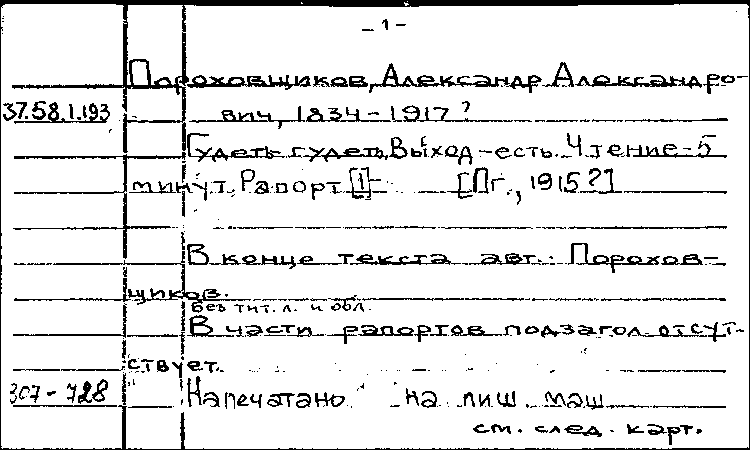 - 1 -
Пороховщиков, Александр Александро-
37.58.1.193 вич, 1834-1917?
Гудеть гудеть. Выход-есть. Чтение-5
минут. Рапорт [1]- [Пг., 1915?]
В конце текста авт.: Порохов-
щиков.
Без тит. л. и обл.
В части рапортов подзагол. отсут-
ствует.
307-728 Напечатано на пиш. маш.
см. след. карт.